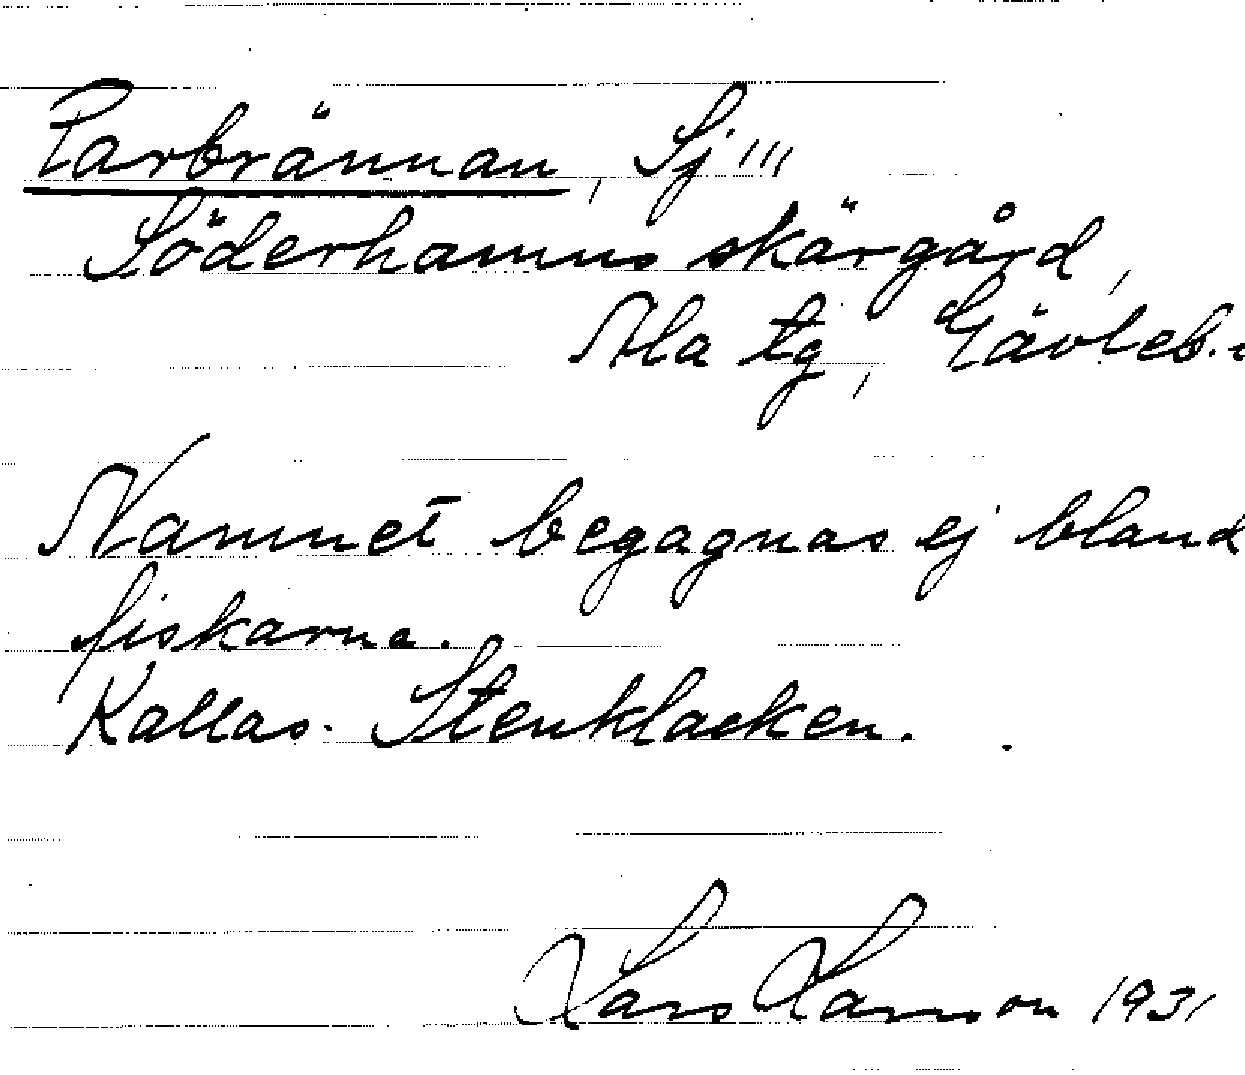 Parbrännan, Sj '''
Söderhamns skärgård,
Ala tg, Gävleb.
Namnet begagnas ej bland
fiskarna.
Kallas Stenklacken.
Lars Larsson 1931